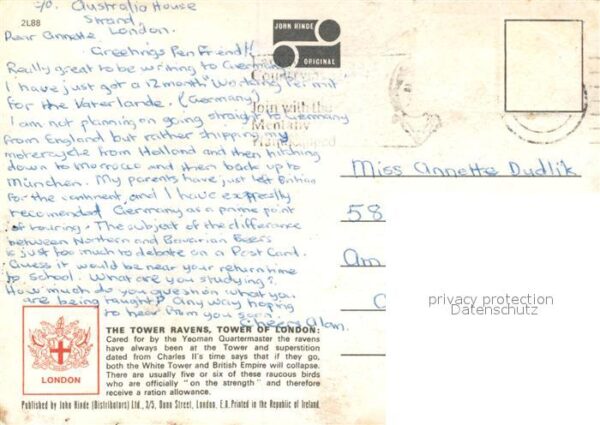 c/o. Australia House
Strand.
London.
2L88
Dear Annette
Greetings Pen Friend!!
Really great to be writing to Germany
I have just got a 12 month "Working Permit
for the Vaterlande. (Germany)
I am not planning on going straight to Germany
from England but rather shipping my
motorcycle from Holland and then hitching
down to Morrocco and then back up to
München. My parents have just left Britian
for the continent, and I have expressly
recomended Germany as a prime point
of touring. The subject of the difference
between Northern and Bavarian Beers
is just too much to debate on a Post Card.
Guess it would be near your return time
to school. What are you studying?
How much do you question what you
are being taught? Any way hoping
to hear from you soon.
Cheers Alan.
JOHN HINDE
ORIGINAL
Join with the
Mentally
Handicapped
Miss Annette Dudlik
58
Am
privacy protection
Datenschutz
LONDON
THE TOWER RAVENS, TOWER OF LONDON:
Cared for by the Yeoman Quartermaster the ravens
have always been at the Tower and superstition
dated from Charles II's time says that if they go,
both the White Tower and British Empire will collapse.
There are usually five or six of these raucous birds
who are officially "on the strength" and therefore
receive a ration allowance.
Published by John Hinde (Distributors) Ltd., 3/5, Dunn Street, London, E.8. Printed in the Republic of Ireland.